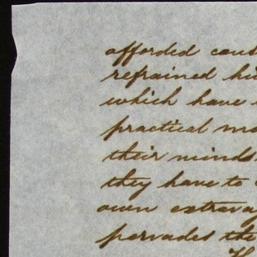 afforded caus
refrained hi
which have
practical mo
their minds
they have to
own extrava
pervades the